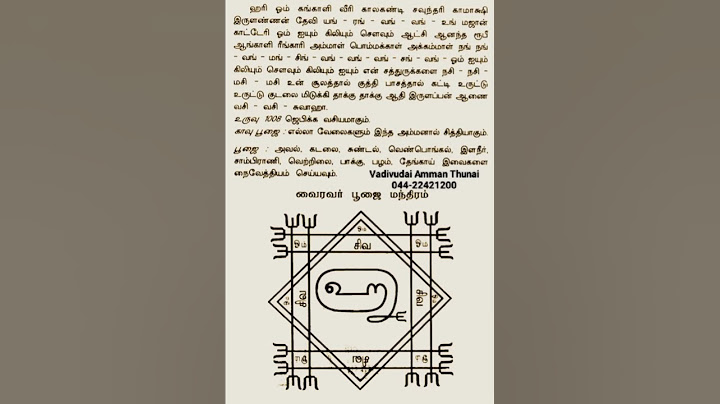 ஹரி ஓம் கங்காளி வீரி காலகண்டி சவுந்தரி காமாக்ஷி
இருளண்ணன் தேவி யங் - ரங் - வங் - வங் - உங் மஜான்
காட்டேரி ஓம் ஐயும் கிலியும் சௌவும் ஆட்சி ஆனந்த ரூபீ
ஆங்காளி ரீங்காரி அம்மாள் பொம்மக்காள் அக்கம்மாள் நங் நங்
- வங் - மங் - சிங் - வங் - வங் - சங் - வங் - ஓம் ஐயும்
கிலியும் சௌவும் கிலியும் ஐயும் என் சத்துருக்களை நசி - நசி -
மசி - மசி உன் சூலத்தால் குத்தி பாசத்தால் கட்டி உருட்டு
உருட்டு குடலை மிடுக்கி தாக்கு தாக்கு ஆதி இருளப்பன் ஆணை
வசி - வசி - சுவாஹா.
உருவு 1008 ஜெபிக்க வசியமாகும்.
காவு பூஜை : எல்லா வேலைகளும் இந்த அம்மனால் சித்தியாகும்.
பூஜை : அவல், கடலை, சுண்டல், வெண்பொங்கல், இளநீர்,
சாம்பிராணி, வெற்றிலை, பாக்கு, பழம், தேங்காய் இவைகளை
நைவேத்தியம் செய்யவும்.
Vadivudai Amman Thunai
044-22421200
வைரவர் பூஜை மந்திரம்
ஓம்
ஓம் சிவ ஓம்
சிவ
றூ
சிவ
ஓம் சிவ ஓம்